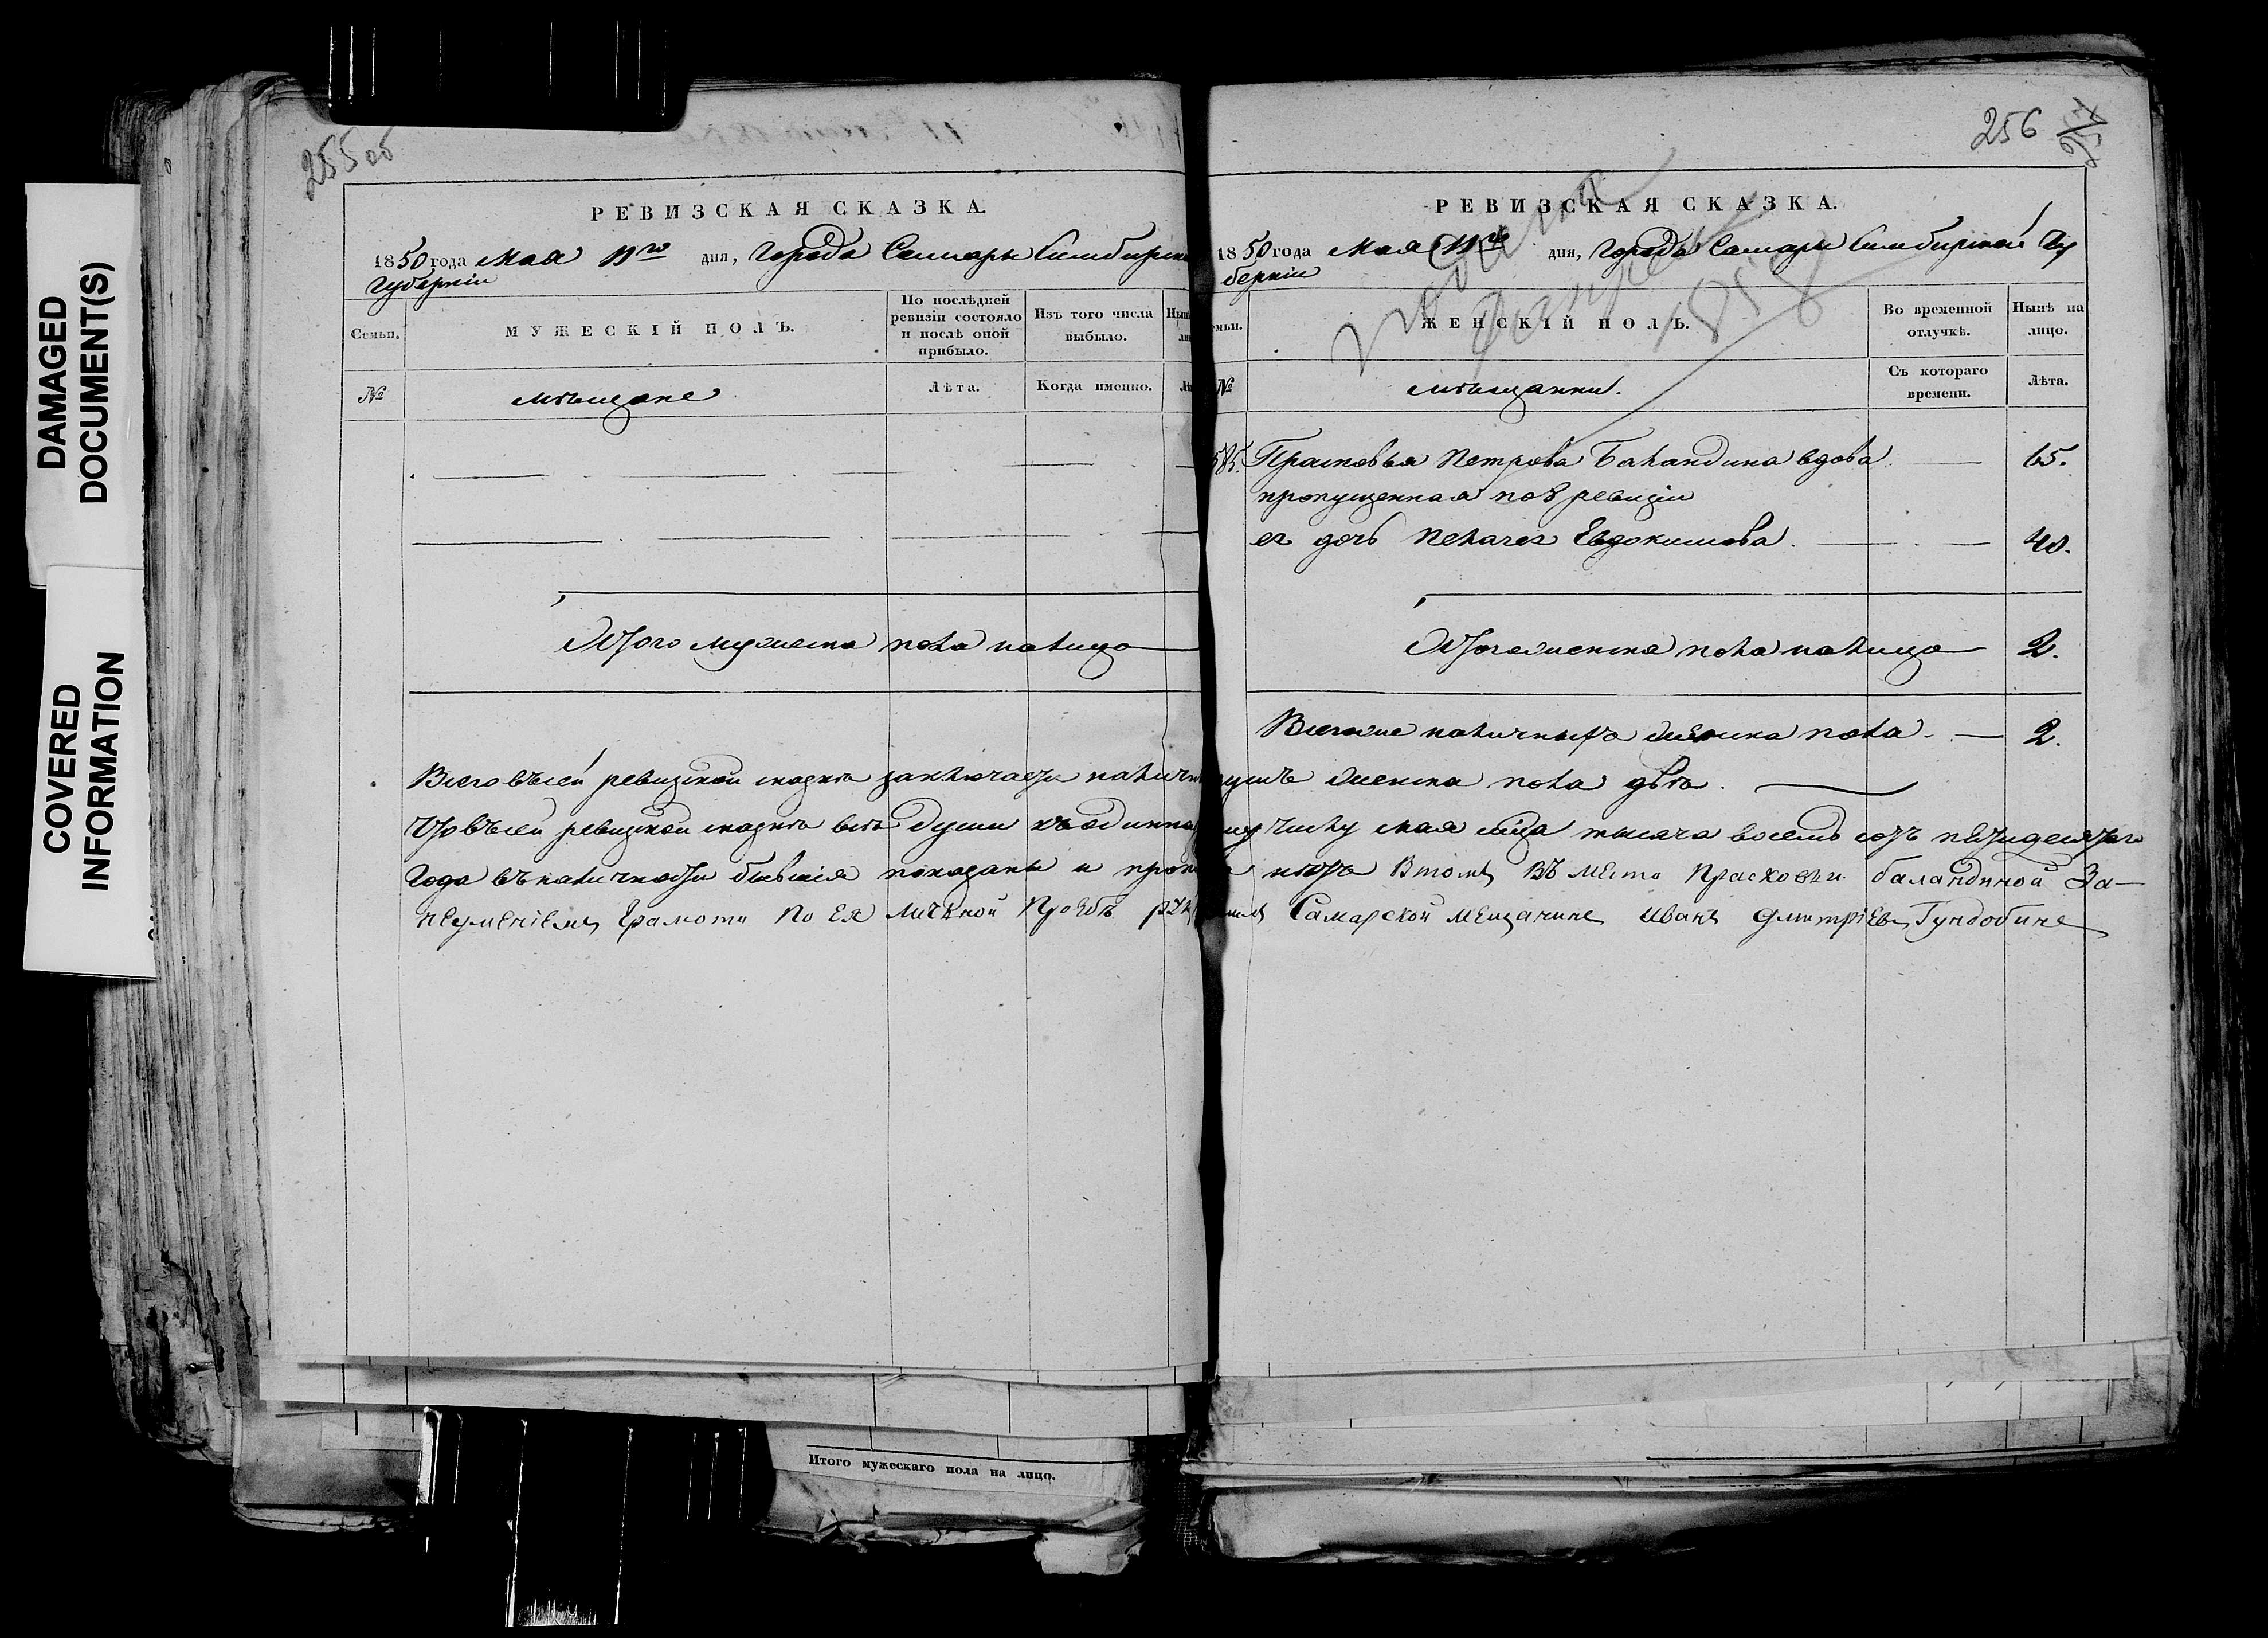 DAMAGED
DOCUMENT(S)
COVERED
INFORMATION
255 об
РЕВИЗСКАЯ СКАЗКА.
1850 года Мая 11го дня, Города Самары Симбирско
Губернiи
Семьи.
МУЖЕСКІЙ ПОЛЪ.
По послѣдней ревизіи состояло и послѣ оной прибыло.
Изъ того числа выбыло.
№
мѣщане
Лѣта.
Когда именно.
Итого мужеска пола налицо
256
РЕВИЗСКАЯ СКАЗКА.
1850 года Мая 11го дня, Города Самары Симбирской Гу
бернiи
ЖЕНСКІЙ ПОЛЪ.
Во временной отлучкѣ.
Нынѣ на лицо.
№
мѣщанки.
Съ котораго времени.
Лѣта.
585. Прасковья Петрова Баландина вдова 65.
пропущенная по 8 ревизiи
ея дочь Пелагея Евдокимова. 40.
Итого женска пола налицо 2.
Всего же наличныхъ женска пола 2.
Всего въ сей ревизской сказкѣ заключается налич душъ женска пола двѣ.
Что въ сей ревизской сказкѣ всѣ души къ одинна числу мая мѣсяца тысяча восемь сотъ пятидесятаго
Года въ наличности бывшiя показаны и проп нѣтъ Втомъ Въ место Прасковьи баландиной За
неуменiемъ Грамоты По ея личьной Прозбѣ Самарской мещанинъ Иванъ Дмитрiевъ Гундобинъ
Итого мужескаго пола на лицо.